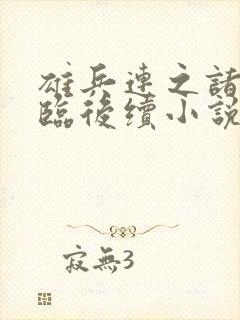 雄兵連之諸
臨後續小說
寂無3